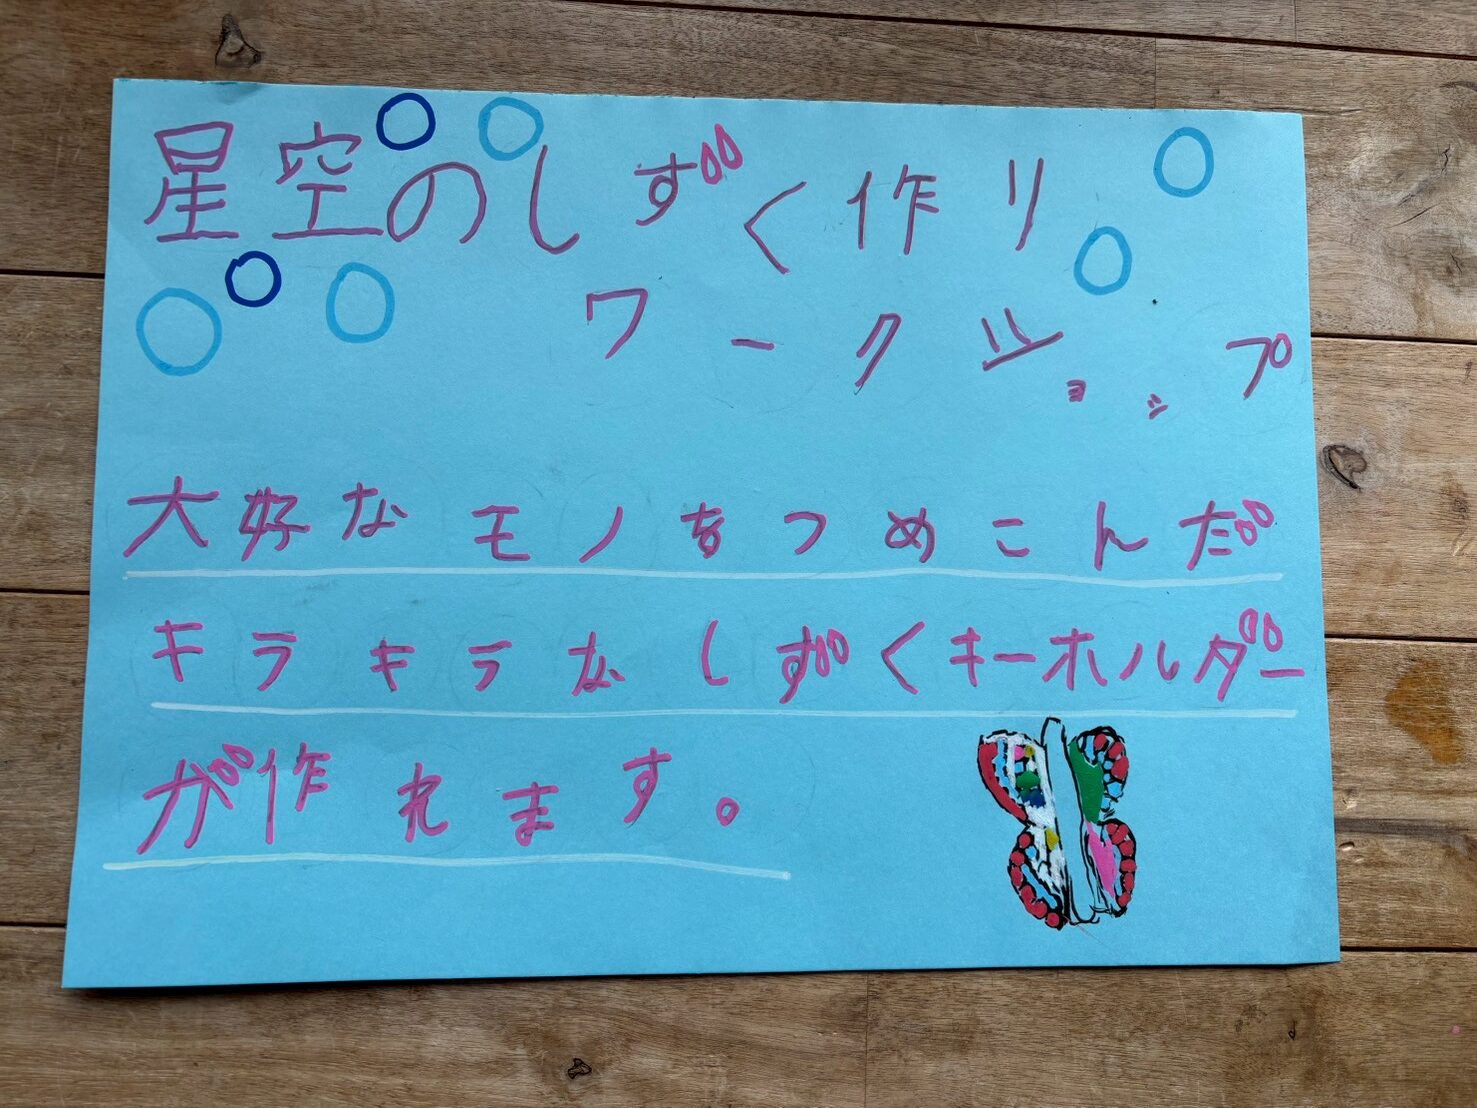 星空のしずく作り
ワークショップ
大好なモノをつめこんだ
キラキラなしずくキーホルダー
が作れます。